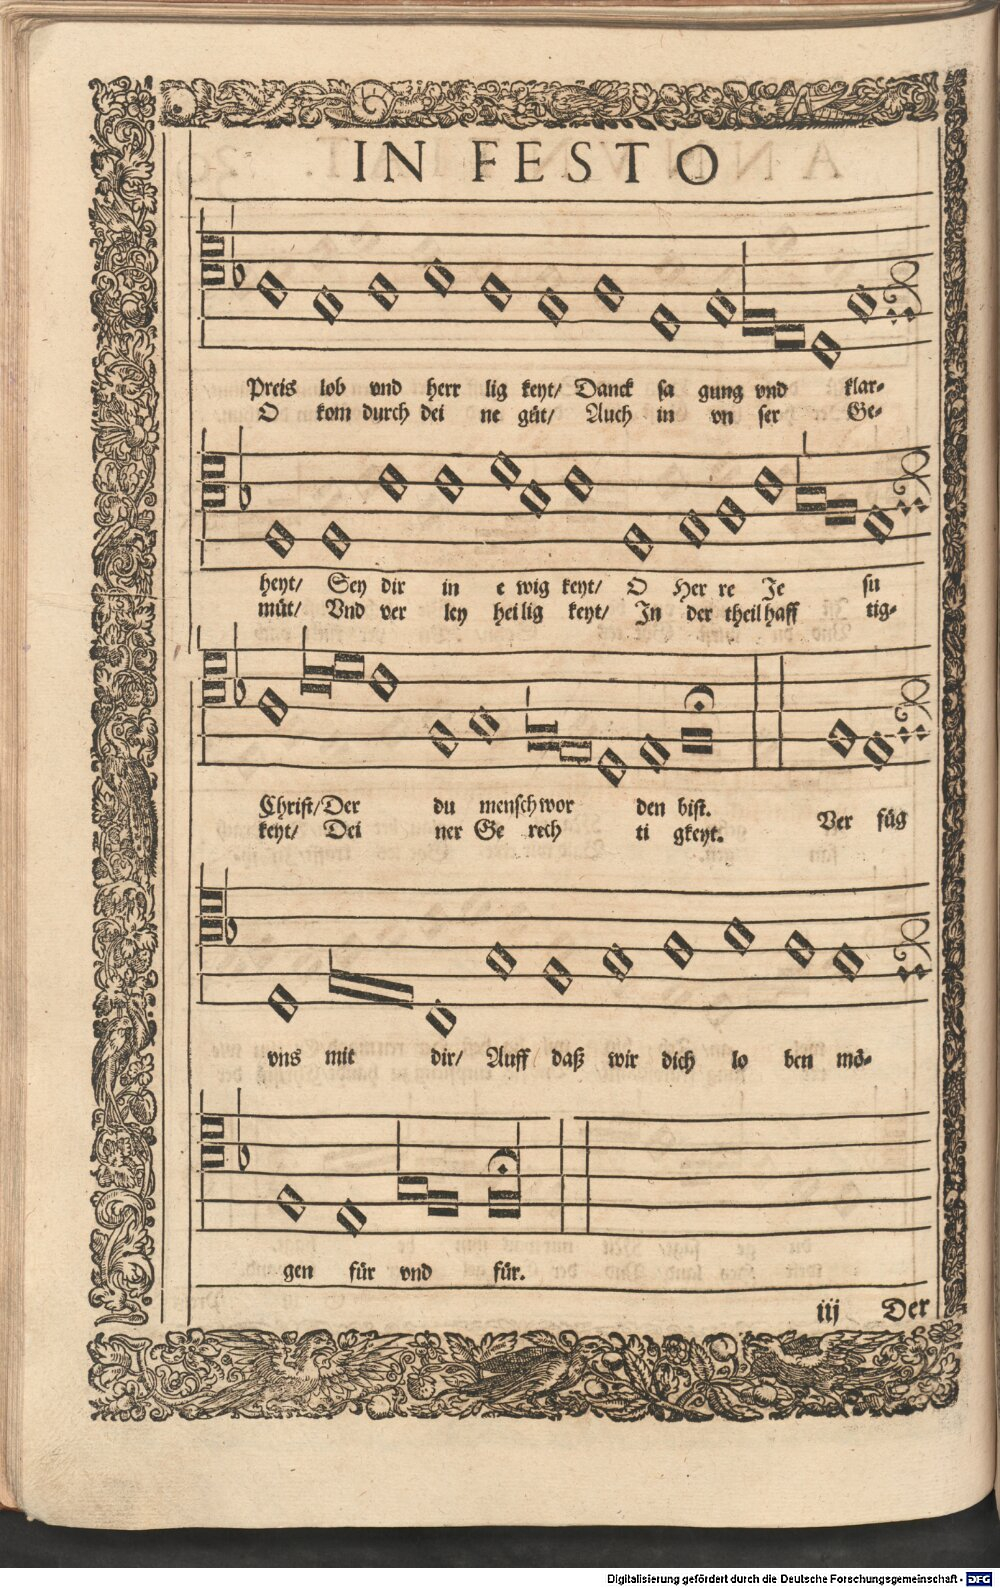 IN FESTO
Preis lob vnd herr lig keyt/ Danck sa gung vnd klar-
O kom durch dei ne güt/ Auch in vn ser Ge-
heyt/ Sey dir in e wig keyt/ O Her re Je su
müt/ Vnd ver ley heilig keyt/ In der theilhaff tig-
Christ/Der du mensch wor den bist.
keyt/ Dei ner Ge rech ti gkeyt. Ver füg
vns mit dir/ Auff daß wir dich lo ben mö-
gen für vnd für.
iij Der
Digitalisierung gefördert durch die Deutsche Forschungsgemeinschaft - DFG